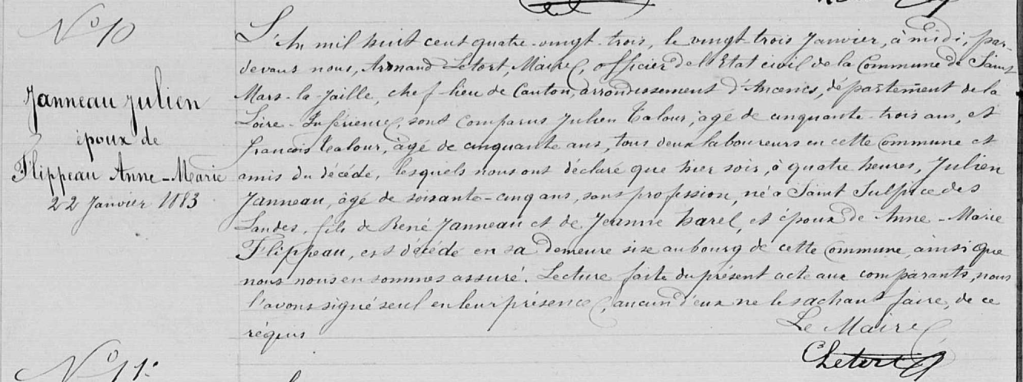 No 10
Janneau Julien
époux de
Flippeau Anne-Marie
22 Janvier 1883
L'An mil huit cent quatre-vingt-trois, le vingt-trois Janvier, à midi, par-
devant nous, Armand Letort, Maire, officier de l'Etat civil de la Commune de Saint
Mars-la-Jaille, chef-lieu de Canton, arrondissement d'Ancenis, département de la
Loire-Inférieure, sont comparus Julien Talour, agé de cinquante-trois ans, et
François Talour, âgé de cinquante ans, tous deux laboureurs en cette commune et
amis du décédé, lesquels nous ont déclaré que hier soir, à quatre heures, Julien
Janneau, âgé de soixante-cinq ans, sans profession, né à Saint Sulpice des
Landes, fils de René Janneau et de Jeanne harel, et époux de Anne-Marie
Flippeau, est décédé en sa demeure sise au bourg de cette commune, ainsi que
nous nous en sommes assuré. Lecture faite du présent acte aux comparants, nous
l'avons signé seul en leur présence, aucun d'eux ne le sachant faire, de ce
réquis
Le Maire
Letort
No 11: